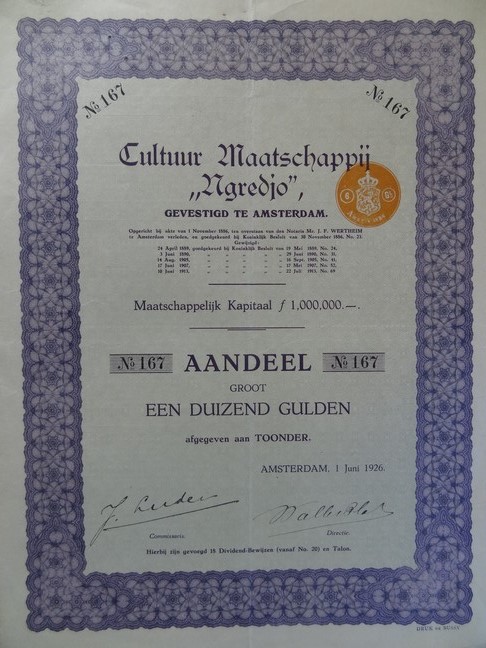 No 167
No 167
Cultuur Maatschappij
„Ngredjo”,
GEVESTIGD TE AMSTERDAM.
Opgericht bij akte van 1 November 1886, ten overstaan van den Notaris Mr. J. F. WERTHEIM
te Amsterdam verleden, en goedgekeurd bij Koninklijk Besluit van 10 November 1886, No. 23.
Gewijzigd:
24 April 1889, goedgekeurd bij Koninklijk Besluit van 19 Mei 1889, No. 24.
3 Juni 1890, „ „ „ „ „ 29 Juni 1890, No. 31.
14 Aug. 1905, „ „ „ „ „ 16 Sept. 1905, No. 41.
17 Juni 1907, „ „ „ „ „ 17 Mei 1907, No. 52.
10 Juni 1913, „ „ „ „ „ 22 Juli 1913, No. 69
Maatschappelijk Kapitaal ƒ 1,000,000.—.
No 167 AANDEEL No 167
GROOT
EEN DUIZEND GULDEN
afgegeven aan TOONDER.
AMSTERDAM, 1 Juni 1926.
Commissaris. Directie.
Hierbij zijn gevoegd 18 Dividend-Bewijzen (vanaf No. 20) en Talon.